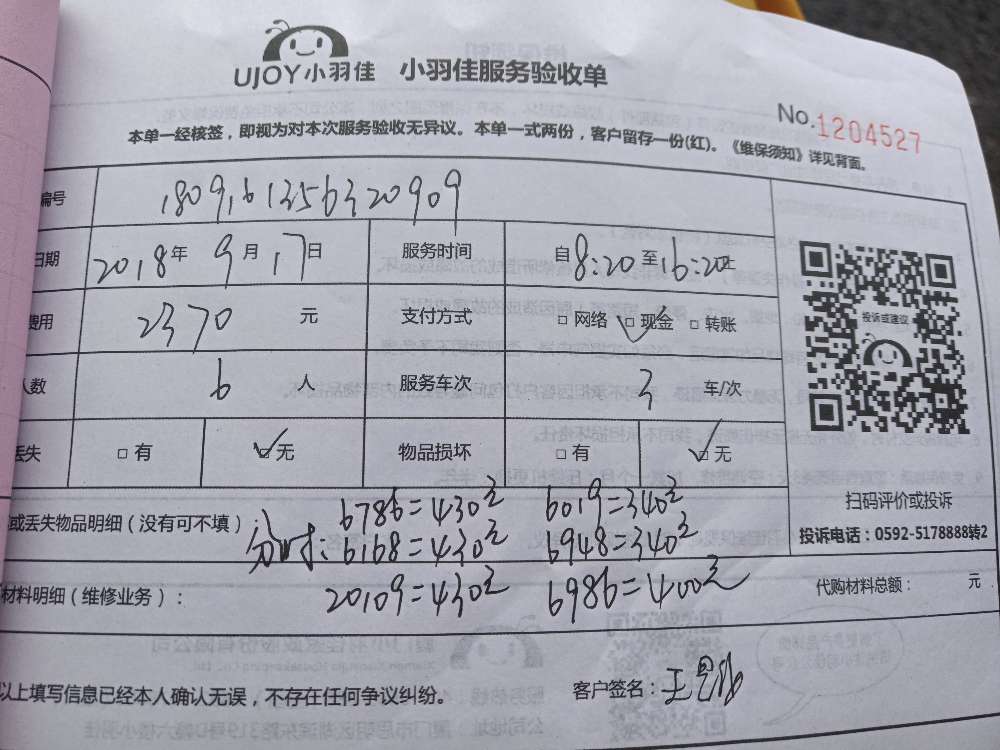 UJOY小羽佳 小羽佳服务验收单
No.1204527
本单一经核签，即视为对本次服务验收无异议。本单一式两份，客户留存一份(红)。《维保须知》详见背面。
编号 1809161356320909
日期 2018年9月17日 服务时间 自8:20至16:20止
费用 2370元 支付方式 □网络 ☑现金 □转账
人数 6人 服务车次 3车/次
丢失 □有 ☑无 物品损坏 □有 ☑无
投诉或建议
扫码评价或投诉
投诉电话：0592-5178888转2
或丢失物品明细（没有可不填）
6786=430元 6019=340元
分时：6168=430元 6948=340元
20109=430元 6986=400元
材料明细（维修业务）： 代购材料总额： 元
以上填写信息已经本人确认无误，不存在任何争议纠纷。 客户签名：王